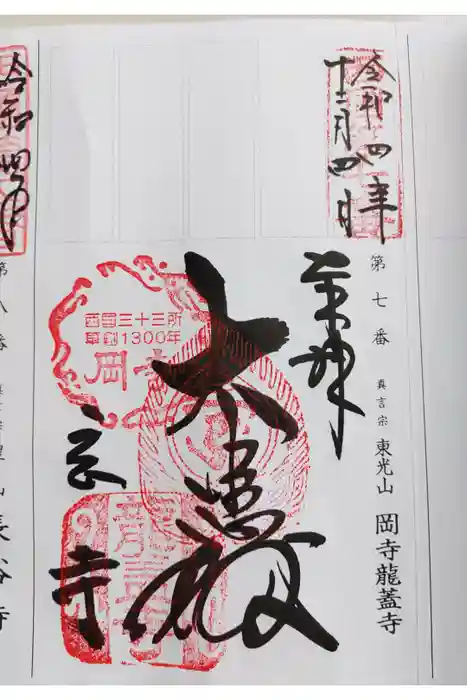 令和四年
十二月四日
第七番 真言宗 東光山 岡寺龍蓋寺
奉拝
大悲殿
岡寺
西国三十三所
草創1300年
岡寺
令和四年
第八番
長谷寺